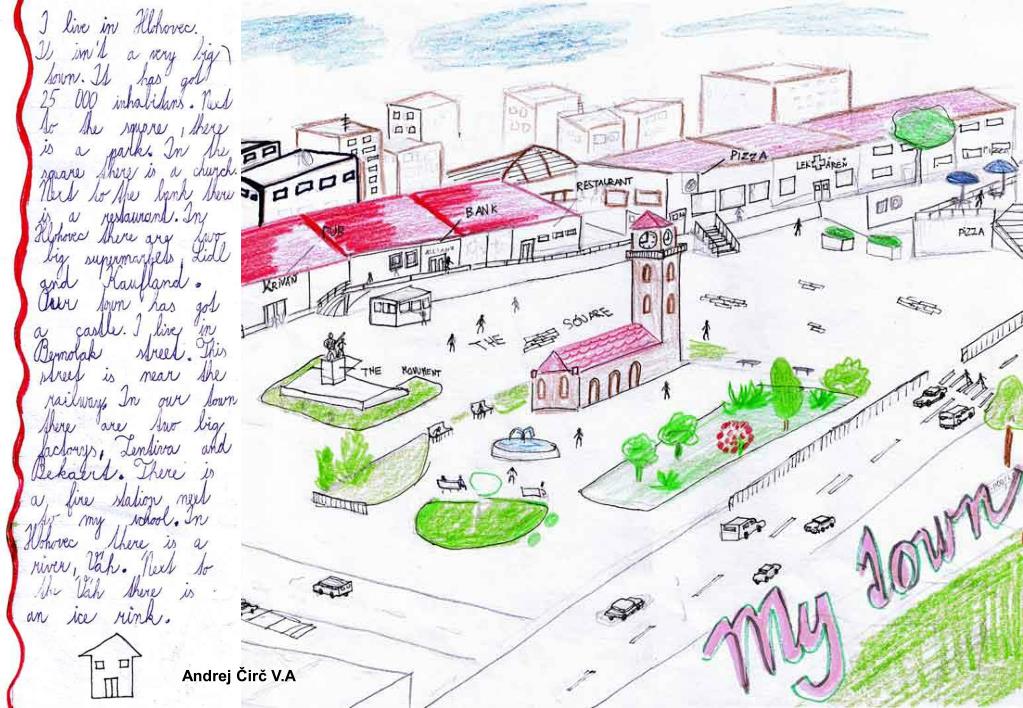 I live in Hlohovec.
It isn't a very big
town. It has got
25 000 inhabitans. Next
to the square, there
is a park. In the
square there is a church.
Next to the bank there
is a restaurant. In
Hlohovec there are two
big supermarkets Lidl
and Kaufland.
Our town has got
a castle. I live in
Bernolak street. This
street is near the
railway. In our town
there are two big
factorys, Zentiva and
Bekaert. There is
a fire station next
to my school. In
Hlohovec there is a
river, Váh. Next to
the Váh there is
an ice rink.
Andrej Čirč V.A
PIZZA
LEKÁREŇ
PIZZA
RESTAURANT
BANK
PUB
ALLIANZ
KRIVÁŇ
PIZZA
THE SQUARE
THE MONUMENT
My Town